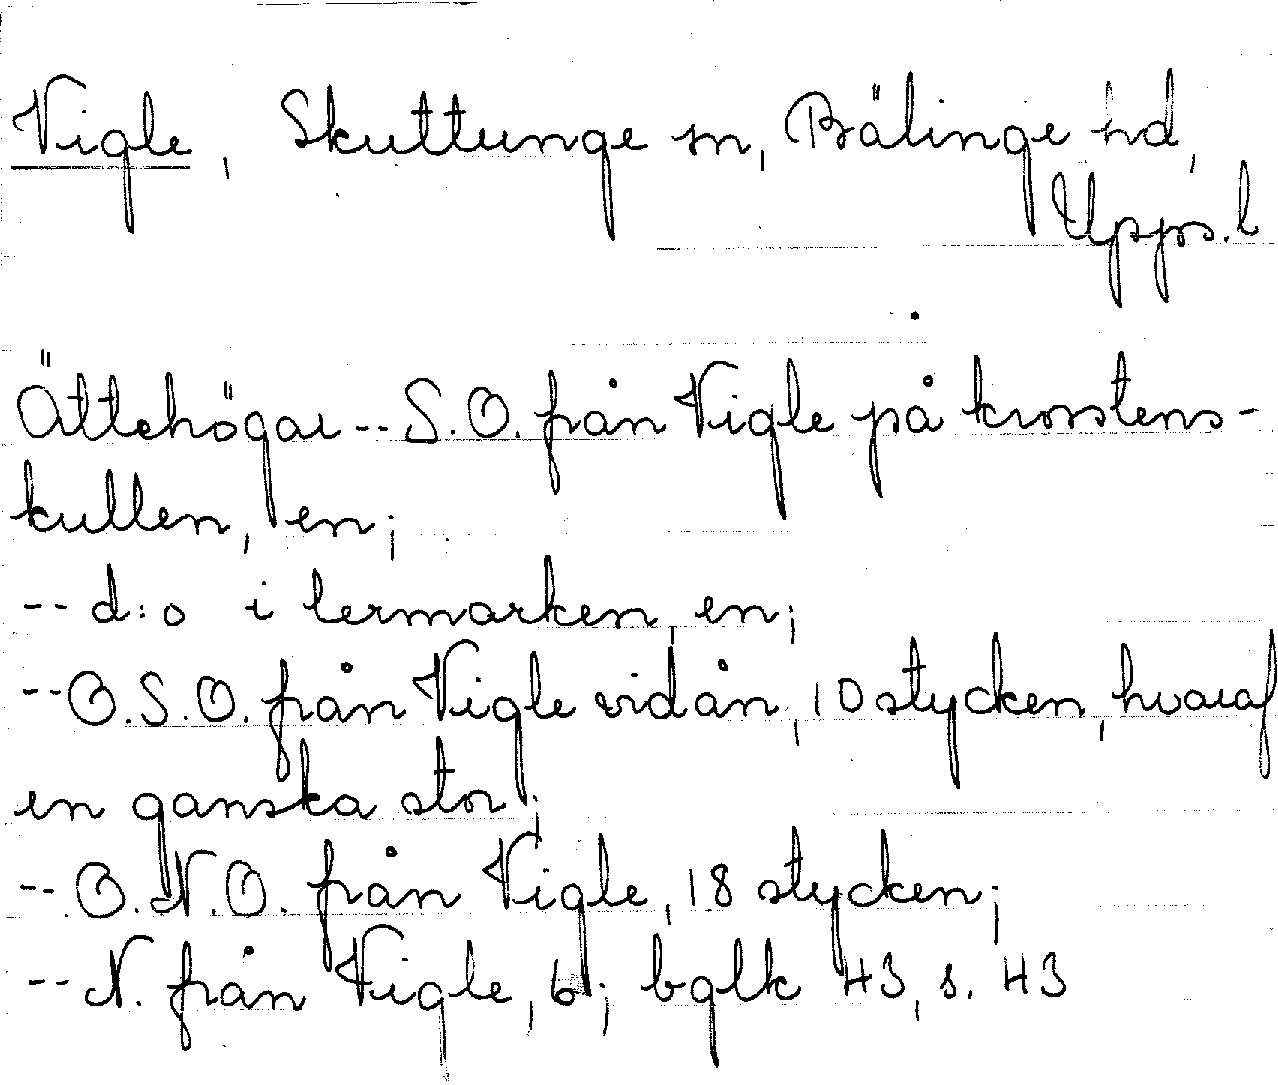 Vigle, Skuttunge sn, Bälinge hd,
Upps. l
Ättehögar -- S.O. från Vigle på krosstens-
kullen, en;
-- d:o i lermarken, en;
-- O.S.O. från Vigle vid ån, 10 stycken, hvaraf
en ganska stor;
-- O.N.O. från Vigle, 18 stycken;
-- N. från Vigle, 6; bglk 43, s. 43